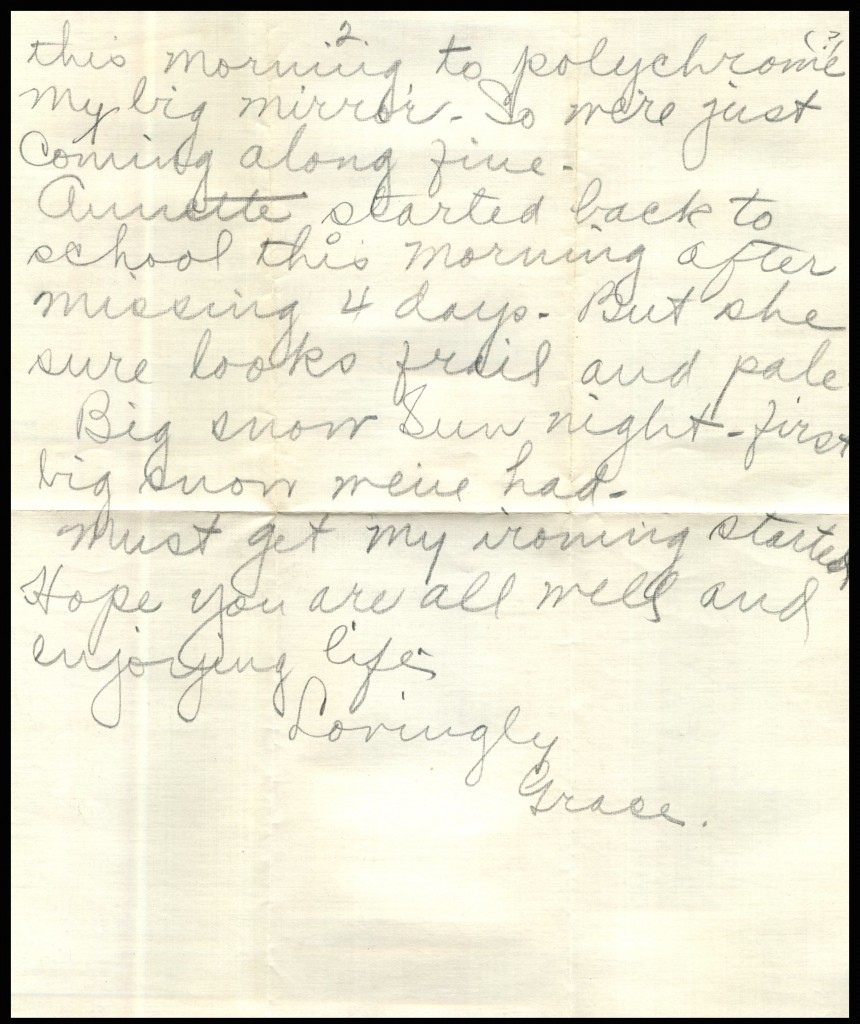 2
this morning to polychrome (?)
my big mirror. So we're just
coming along fine.
Annette started back to
school this morning after
missing 4 days. But she
sure looks frail and pale
Big snow Sun night - first
big snow we've had.
Must get my ironing started
Hope you are all well and
enjoying life.
Lovingly
Grace.